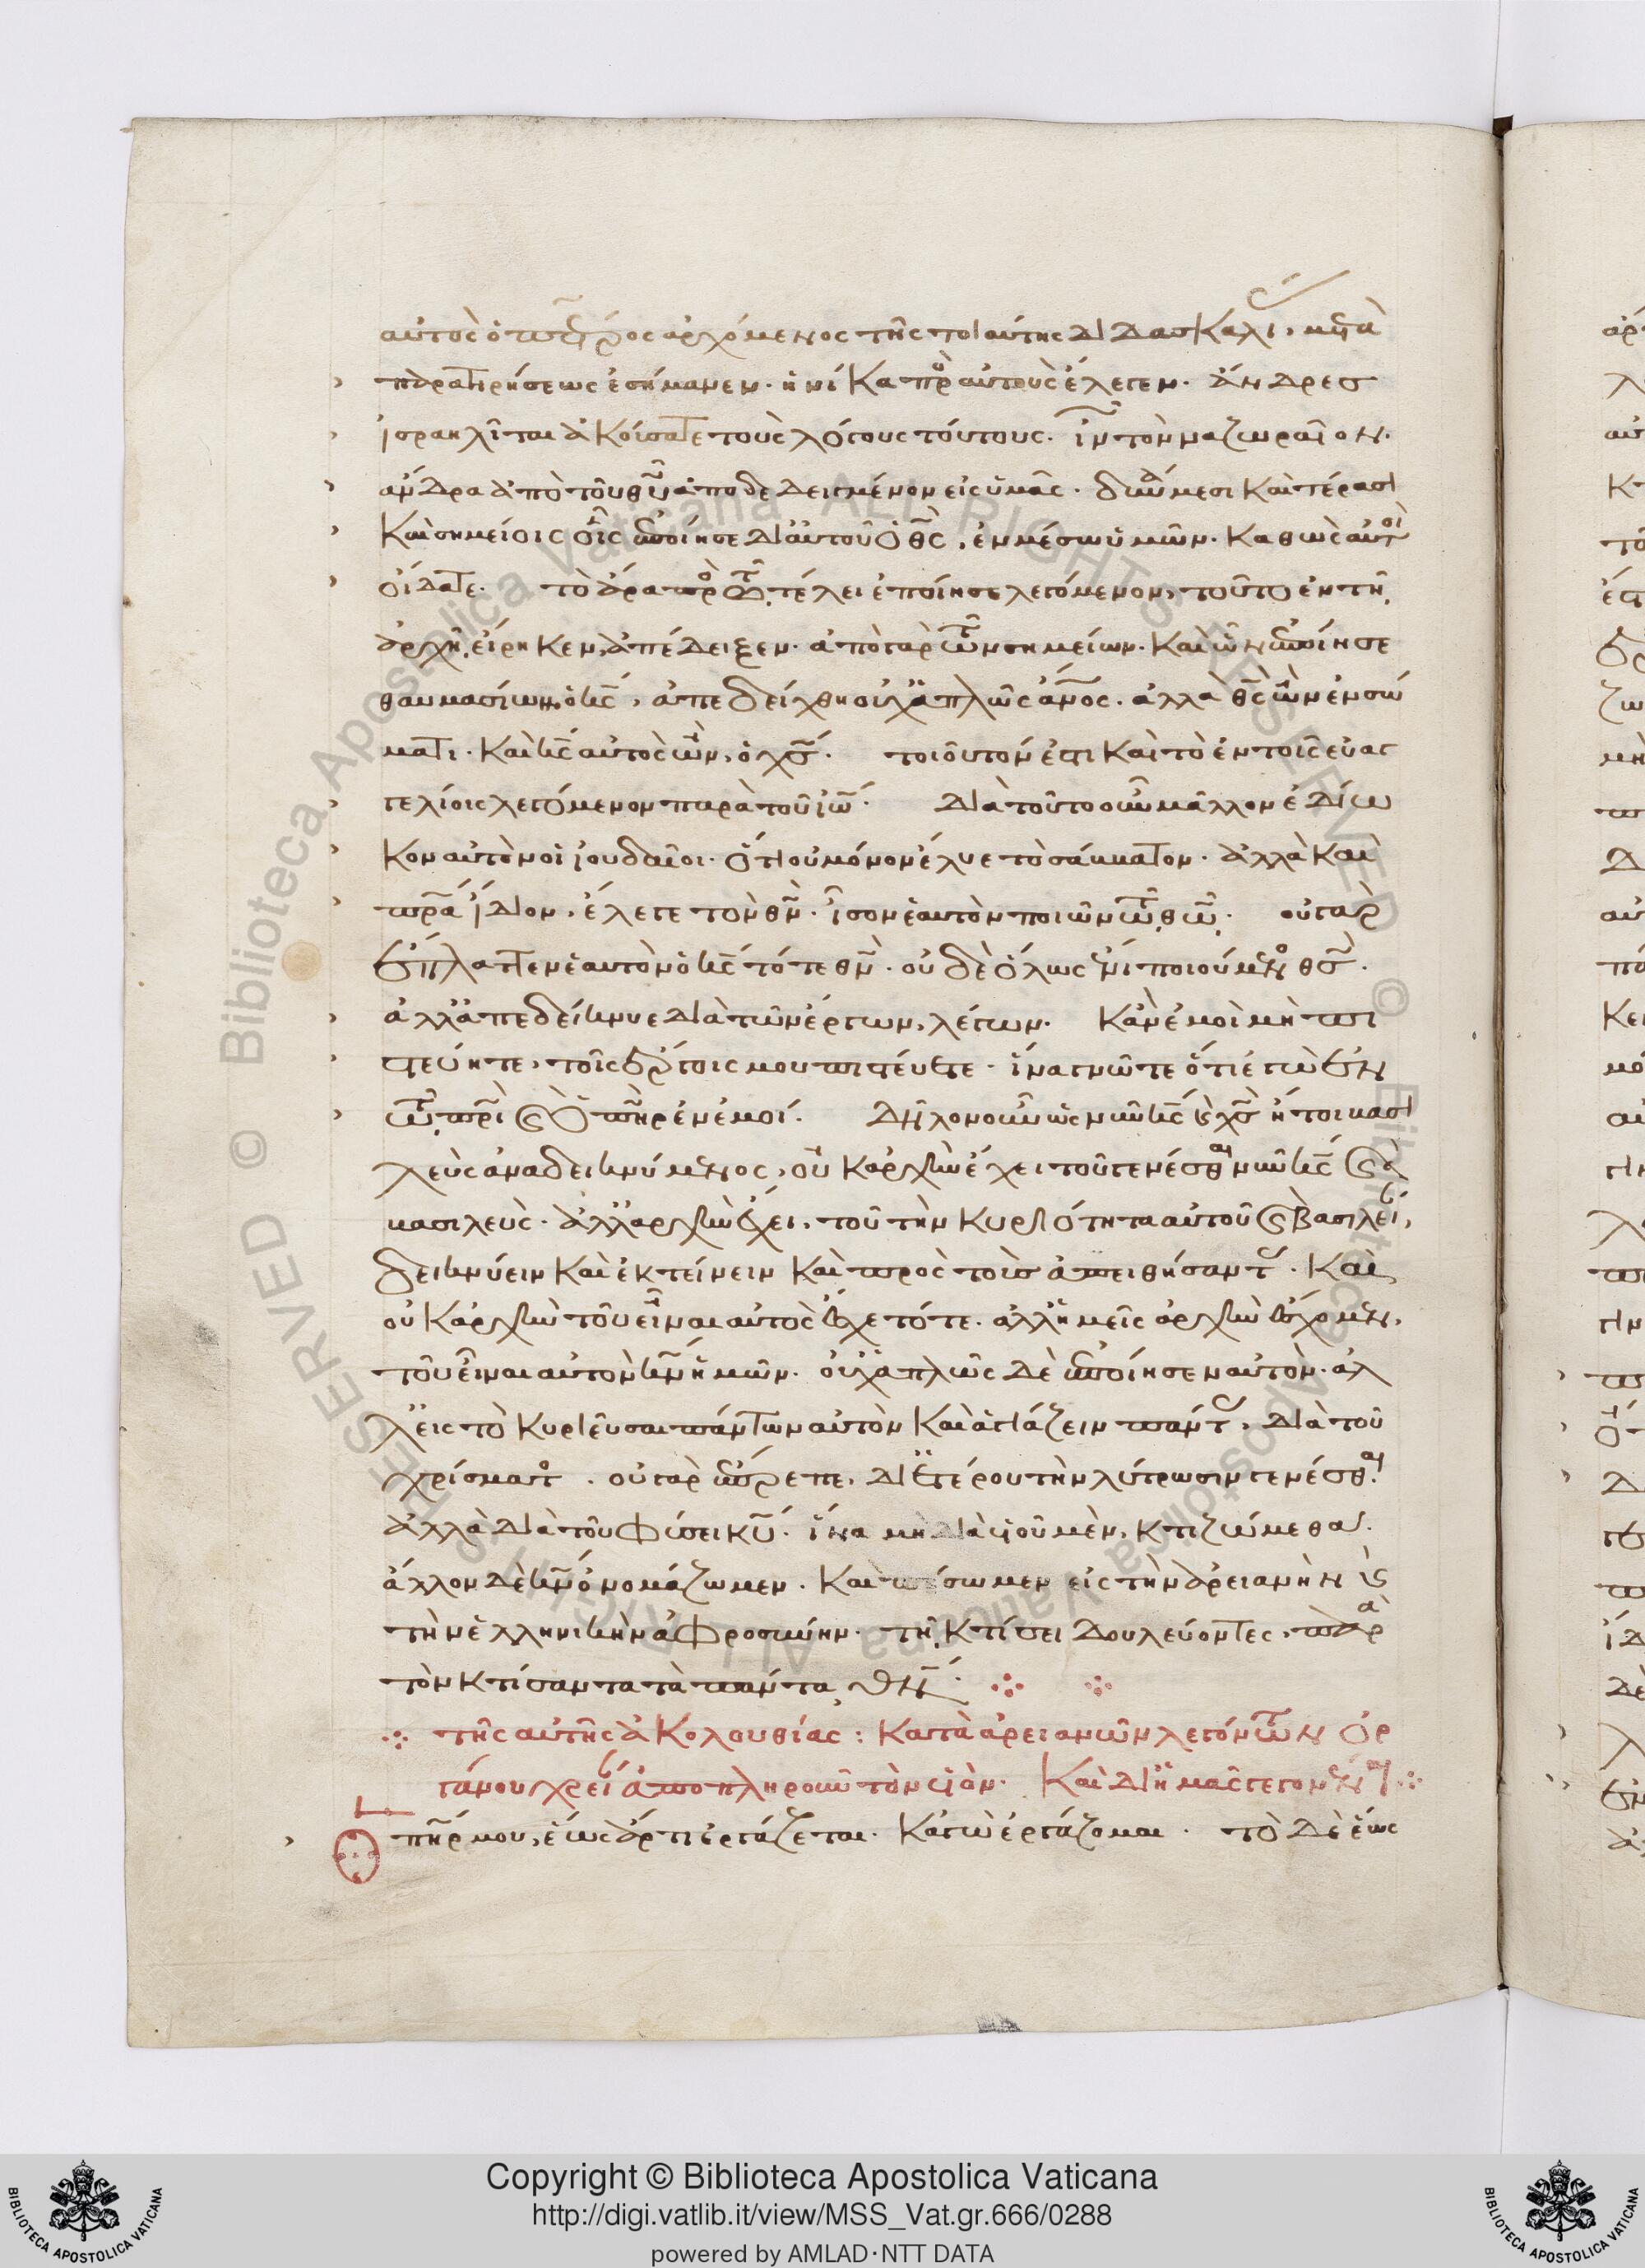 αὐτὸς ὁ πέτρος ἀρχόμενος τῆς τοιαύτης διδασκαλί, μετὰ
παρατηρήσεως ἐσήμανεν. ἡνίκα πρὸ αὐτοὺς ἔλεγεν. ἄνδρες
ἰσραηλῖται ἀκούσατε τοὺς λόγους τούτους. ἰν τὸν ναζωραῖον.
ἄνδρα ἀπὸ τοῦ θῦ ἀποδεδειγμένον εἰς ὑμᾶς. δυνάμεσι καὶ τέρασι
καὶ σημείοις οἷς ἐποίησε δι αὐτοῦ ὁ θς, ἐν μέσω ὑμῶν. καθὼς αὐτοὶ
οἴδατε. τὸ ἄρα πρὸ τῶ τέλει ἐποίησε λεγόμενον, τοῦτο ἐν τῆ
ἀρχῆ εἴρηκεν, ἀπέδειξεν. ἀπὸ γὰρ τῶν σημείων. καὶ ὧν ἐποίησε
θαυμασίων ὁ κς, ἀπεδείχθη οὐχ ἁπλῶς ἄνος. ἀλλὰ θς ὢν ἐν σώ
ματι. καὶ κς αὐτὸς ὢν, ὁ χς. τοιοῦτον ἐστι καὶ τὸ ἐν τοῖς εὐαγ
γελίοις λεγόμενον παρὰ τοῦ ἰω. διὰ τοῦτο οὖν μᾶλλον ἐδίω
κον αὐτὸν οἱ ἰουδαῖοι. ὅτι οὐ μόνον ἔλυε τὸ σάββατον. ἀλλὰ καὶ
πρα ἴδιον, ἔλεγε τὸν θν. ἴσον ἑαυτὸν ποιῶν τῶ θω. οὐ γὰρ
ἔπλαττεν ἑαυτὸν ὁ κς τότε θν. οὐδὲ ὅλως ἐστὶ ποιούμενος θς.
ἀλλ ἀπεδείκνυε διὰ τῶν ἔργων, λέγων. κἂν ἐμοὶ μὴ πισ
τεύητε, τοῖς ἔργοις μου πιστεύετε. ἵνα γνῶτε ὅτι ἐγὼ ἐν
τῶ πρι καὶ ὁ πηρ ἐν ἐμοί. δῆλον οὖν ὡς νῦν κς καὶ χς ἤτοι βασι
λεὺς ἀναδεικνύμενος, οὐκ ἀρχὴν ἔχει τοῦ γενέσθαι νῦν κς καὶ
βασιλεὺς. ἀλλ ἀρχὴν ἔχει, τοῦ τὴν κυριότητα αὐτοῦ καὶ βασιλεί,
δεικνύειν καὶ ἐκτείνειν καὶ πρὸς τοὺς ἀπειθήσαντ. καὶ
οὐκ ἀρχὴν τοῦ εἶναι αὐτὸς ἔσχε τότε. ἀλλ ἡμεῖς ἀρχὴν ἔσχομεν,
τοῦ εἶναι αὐτὸν κν ἡμῶν. οὐχ ἁπλῶς δὲ ἐποίησεν αὐτὸν. ἀλ
λ εἰς τὸ κυριεῦσαι πάντων αὐτὸν καὶ ἁγιάζειν πάντ, διὰ τοῦ
χρίσματ. οὐ γὰρ ἔπρεπε, δι ἑτέρου τὴν λύτρωσιν γενέσθαι.
ἀλλὰ διὰ τοῦ φύσει κυ. ἵνα μὴ διὰ υἱοῦ μὲν, κτιζώμεθα.
ἄλλον δὲ κν ὀνομάζωμεν. καὶ πέσωμεν εἰς τὴν ἀρειανὴν καὶ
τὴν ἑλληνικὴν ἀφροσύνην. τῆ κτίσει δουλεύοντες, παρὰ
τὸν κτίσαντα τὰ πάντα θν.
τῆς αὐτῆς ἀκολουθίας: κατὰ ἀρειανῶν λεγόντων ὀρ
γάνου χρείαν ἀποπληροῦν τὸν υἱὸν. καὶ δι ἡμᾶς γεγονέναι
Ὁ πηρ μου, ἕως ἄρτι ἐργάζεται. κἀγὼ ἐργάζομαι. τὸ δὲ ἕως
Copyright © Biblioteca Apostolica Vaticana
http://digi.vatlib.it/view/MSS_Vat.gr.666/0288
powered by AMLAD·NTT DATA